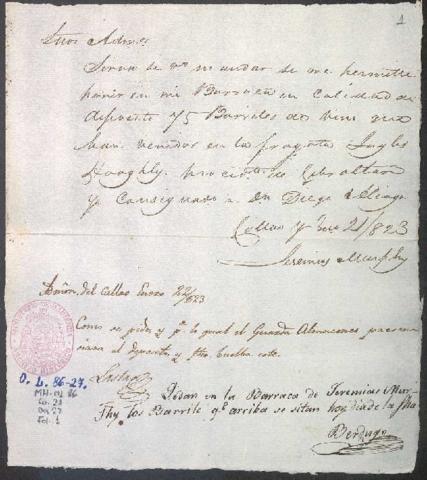 1
Sres Admes
Sirva se Vms mandar se me permitta
poner en mi Barraca en Calidad de
deposito 75 Barriles de
venidos en la fragata Ingles
Hooghly procid.te de Gibraltar
y Consignado a Dn Diego
Callao y Enro 21/823
Jeremias Murphy
Admon. del Callao Enero 22/823
Como se pide y pa. lo qual el Guarda Almacenes
el deposito y fho. buelva este.
Quedan en la Barraca de Jeremias Mur-
phy los Barrile qe. arriba se sitan hoy dia de la fha
Berdugo
O. L. 86-27.
MH-OL 86
Ca. 21
Do. 27
Fol. 1